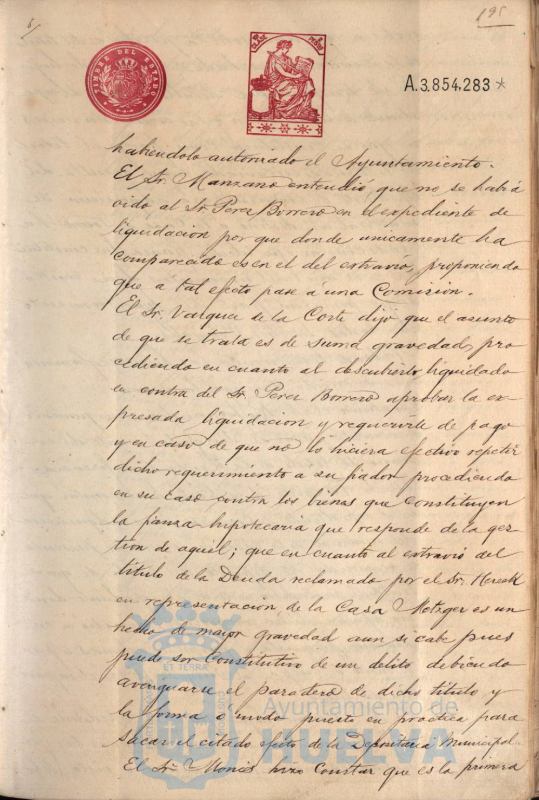 195
TIMBRE DEL ESTADO
A.3.854.283*
habiendolo autoriado el Ayuntamiento.
El Sr. Manzano entendió que no se habrá
oido al Sr Perez Borrero en el expediente de
liquidacion por que donde unicamente ha
comparecido es en el del estravio, proponiendo
que a tal efecto pase á una Comisión.
El Sr. Vazquez de la Corte dijó que el asunto
de que se trata es de suma gravedad, pro
cediendo en cuanto al descubierto liquidado
en contra del Sr Perez Borrero aprobar la ex
presada liquidacion y requerirle de pago
y en caso de que no lo hiciera efectivo repetir
dicho requerimiento a su fiador procediendo
en su caso contra los bienes que constituyen
la fianza hipotecaria que responde de la ges
tion de aquel; que en cuanto al estravio del
titulo de la Deuda reclamado por el Sr.
en representacion de la Casa Metzger es un
hecho de mayor gravedad aun si cabe pues
puede ser constitutivo de un delito debiendo
averiguarse el paradero de dicho titulo y
la forma o modo puesto en practica para
sacar el citado efecto de la Depositaria Municipal.
El Sr. Monis hizo constar que es la primera
ET TERRA
Ayuntamiento de
HUELVA